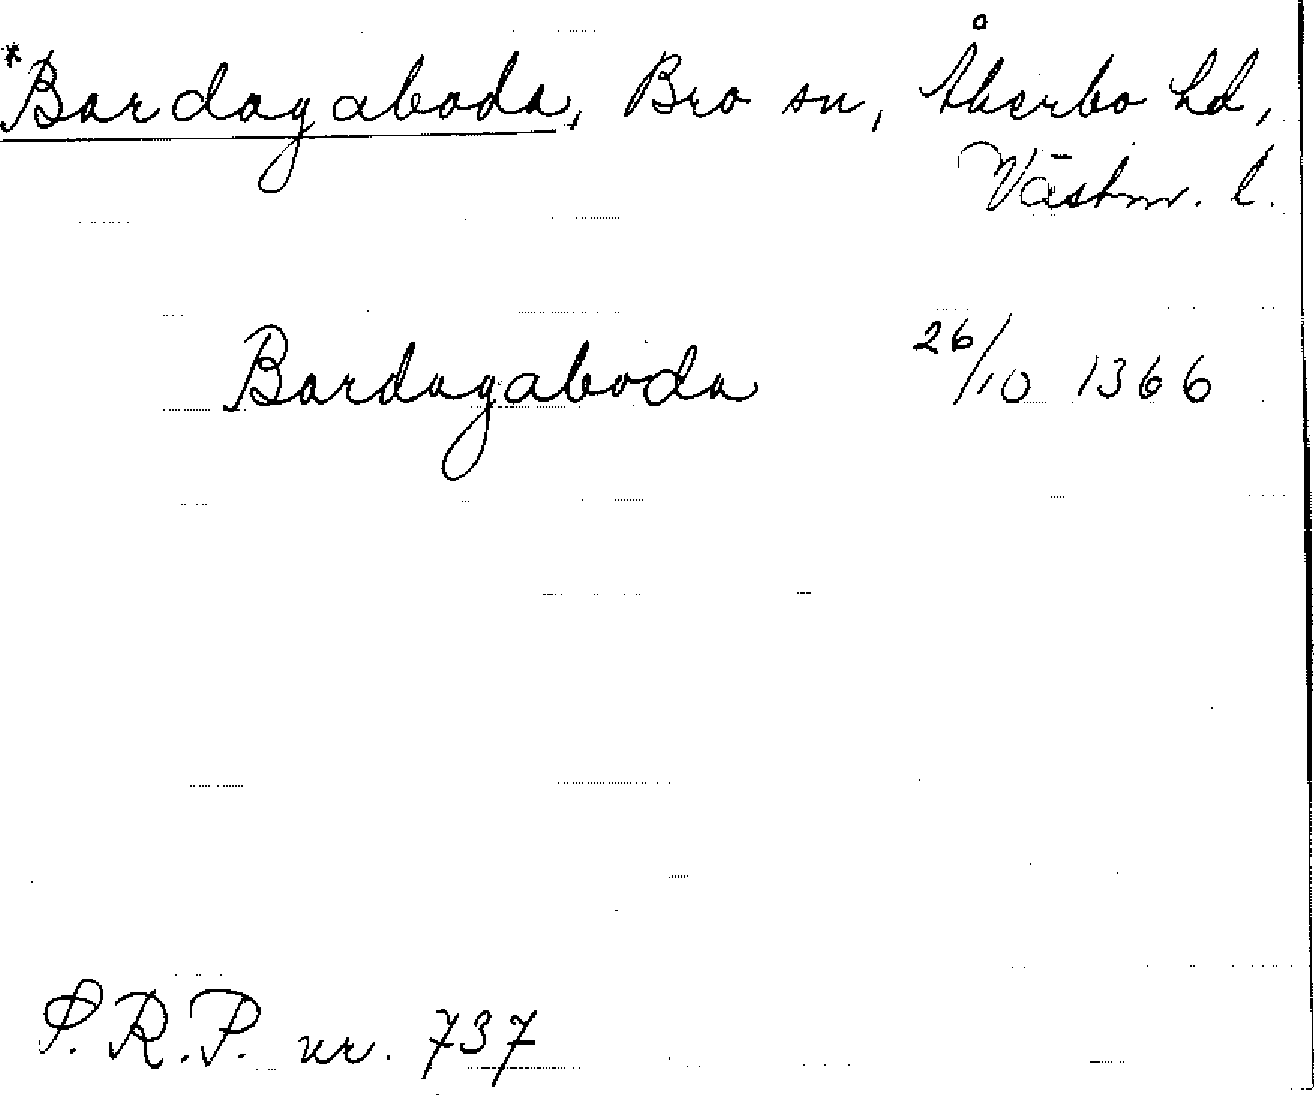 *Bardagaboda, Bro sn, Åkerbo hd,
Västm. l.
Bardagaboda 26/10 1366
S.R.P. nr. 737